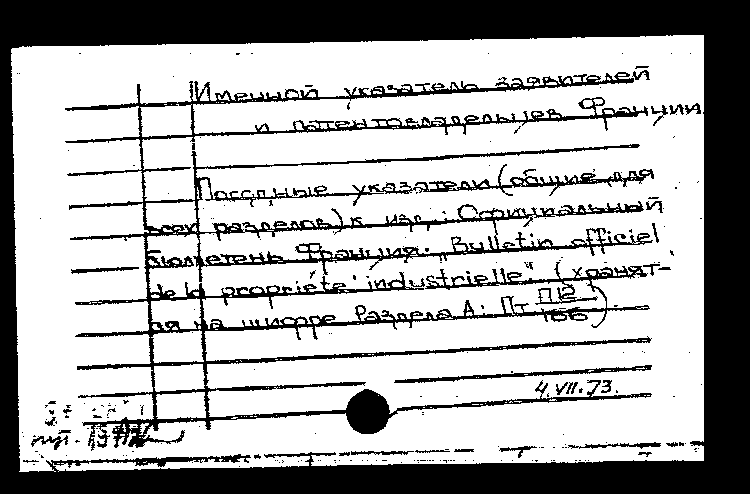 Именной указатель заявителей
и патентовладельцев Франции.
Погодные указатели (общие для
всех разделов) к изд.: Официальный
бюллетень Франция. „Bulletin officiel
de la propriété industrielle" (хранят-
ся на шифре Раздела А: Пт П12/166).
4.VII.73.